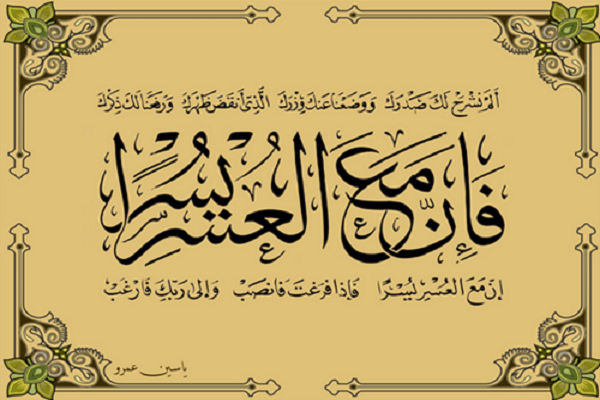 ألم نشرح لك صدرك ووضعنا عنك وزرك الذي أنقض ظهرك ورفعنا لك ذكرك
فَإِنَّ مَعَ الْعُسْرِ يُسْرًا
إن مع العسر يسرا فإذا فرغت فانصب وإلى ربك فارغب
ياسين عمرو